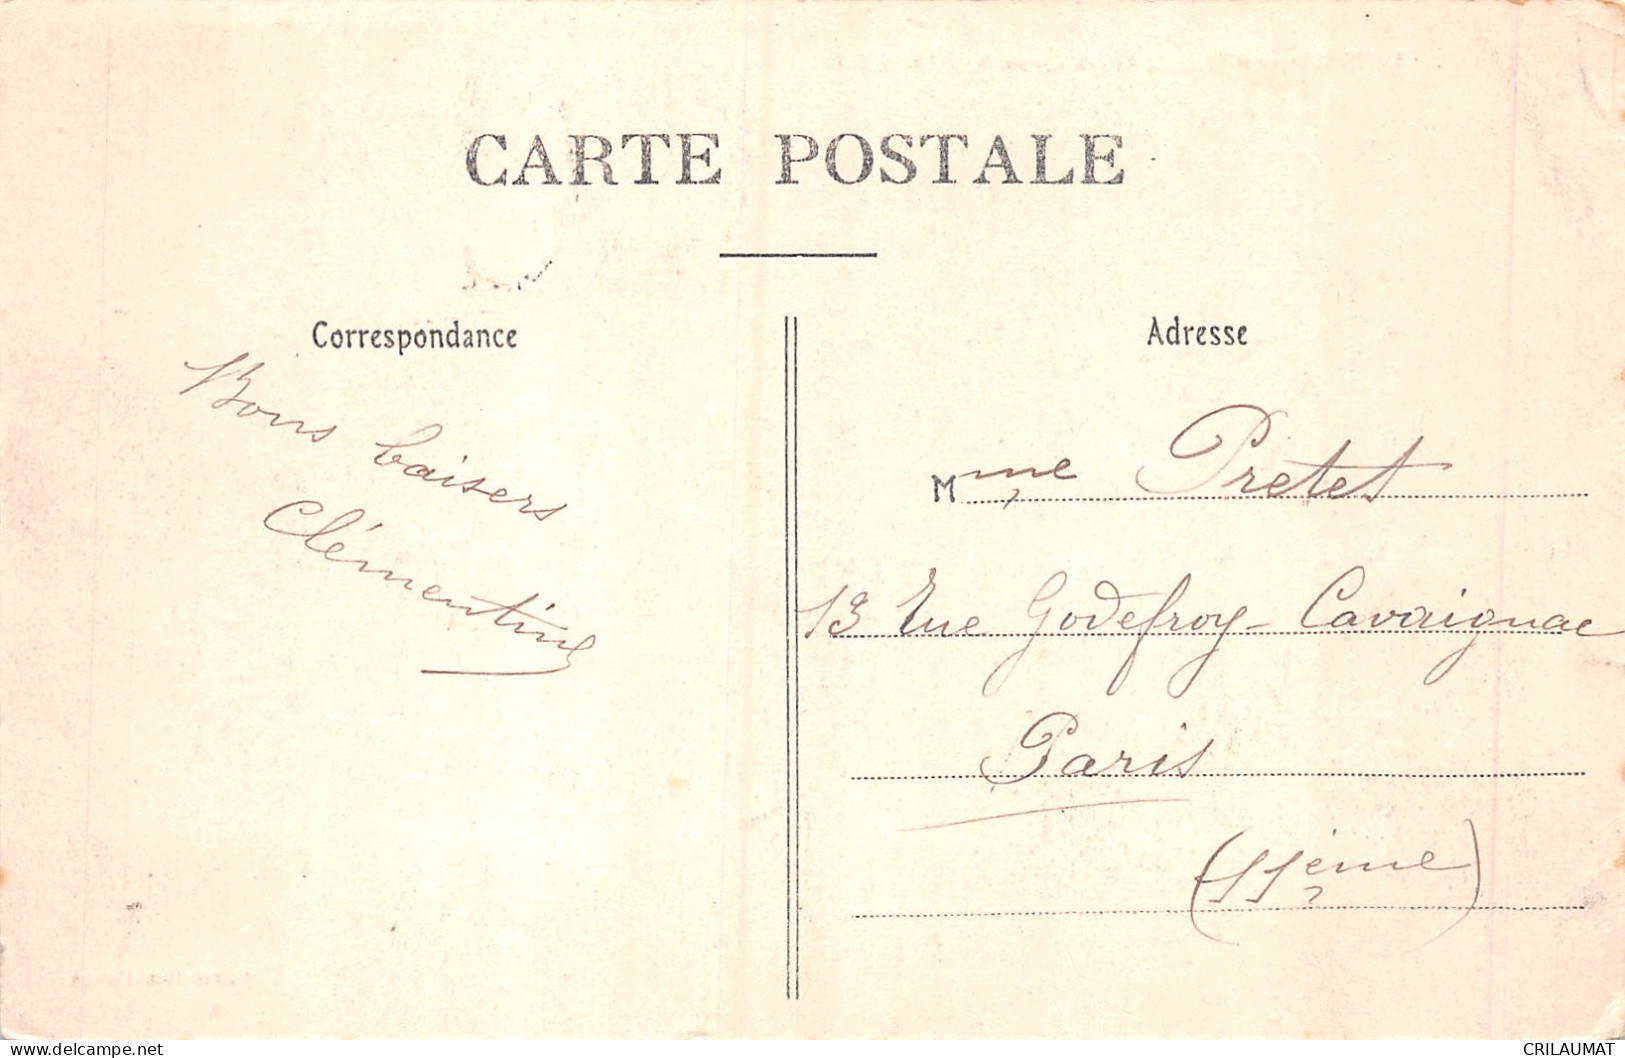 CARTE POSTALE
Correspondance
Bons baisers
Clémentine
Adresse
Mme Pretet
13 Rue Godefroy-Cavaignac
Paris
(11ème)
www.delcampe.net
CRILAUMAT